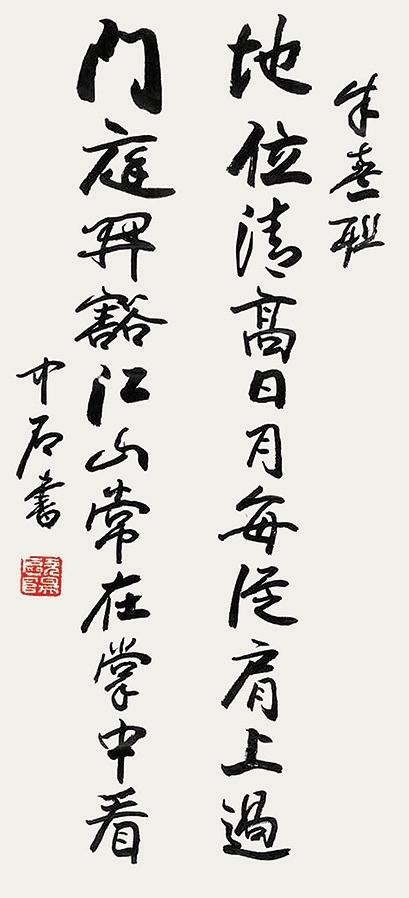 朱熹联
地位清高日月每从肩上過
門庭開豁江山常在掌中看
中石書